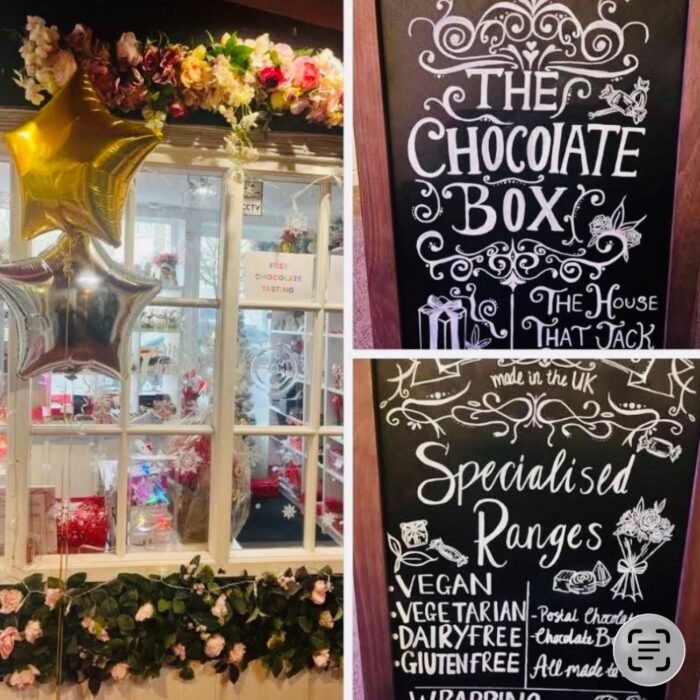 CCTV
FREE
CHOCOLATE
TASTING
THE
CHOCOLATE
BOX
THE HOUSE
THAT JACK
made in the UK
Specialised
Ranges
• VEGAN
• VEGETARIAN
• DAIRYFREE
• GLUTENFREE
- Postal Chocolate
- Chocolate B
All made to
WRAPPING